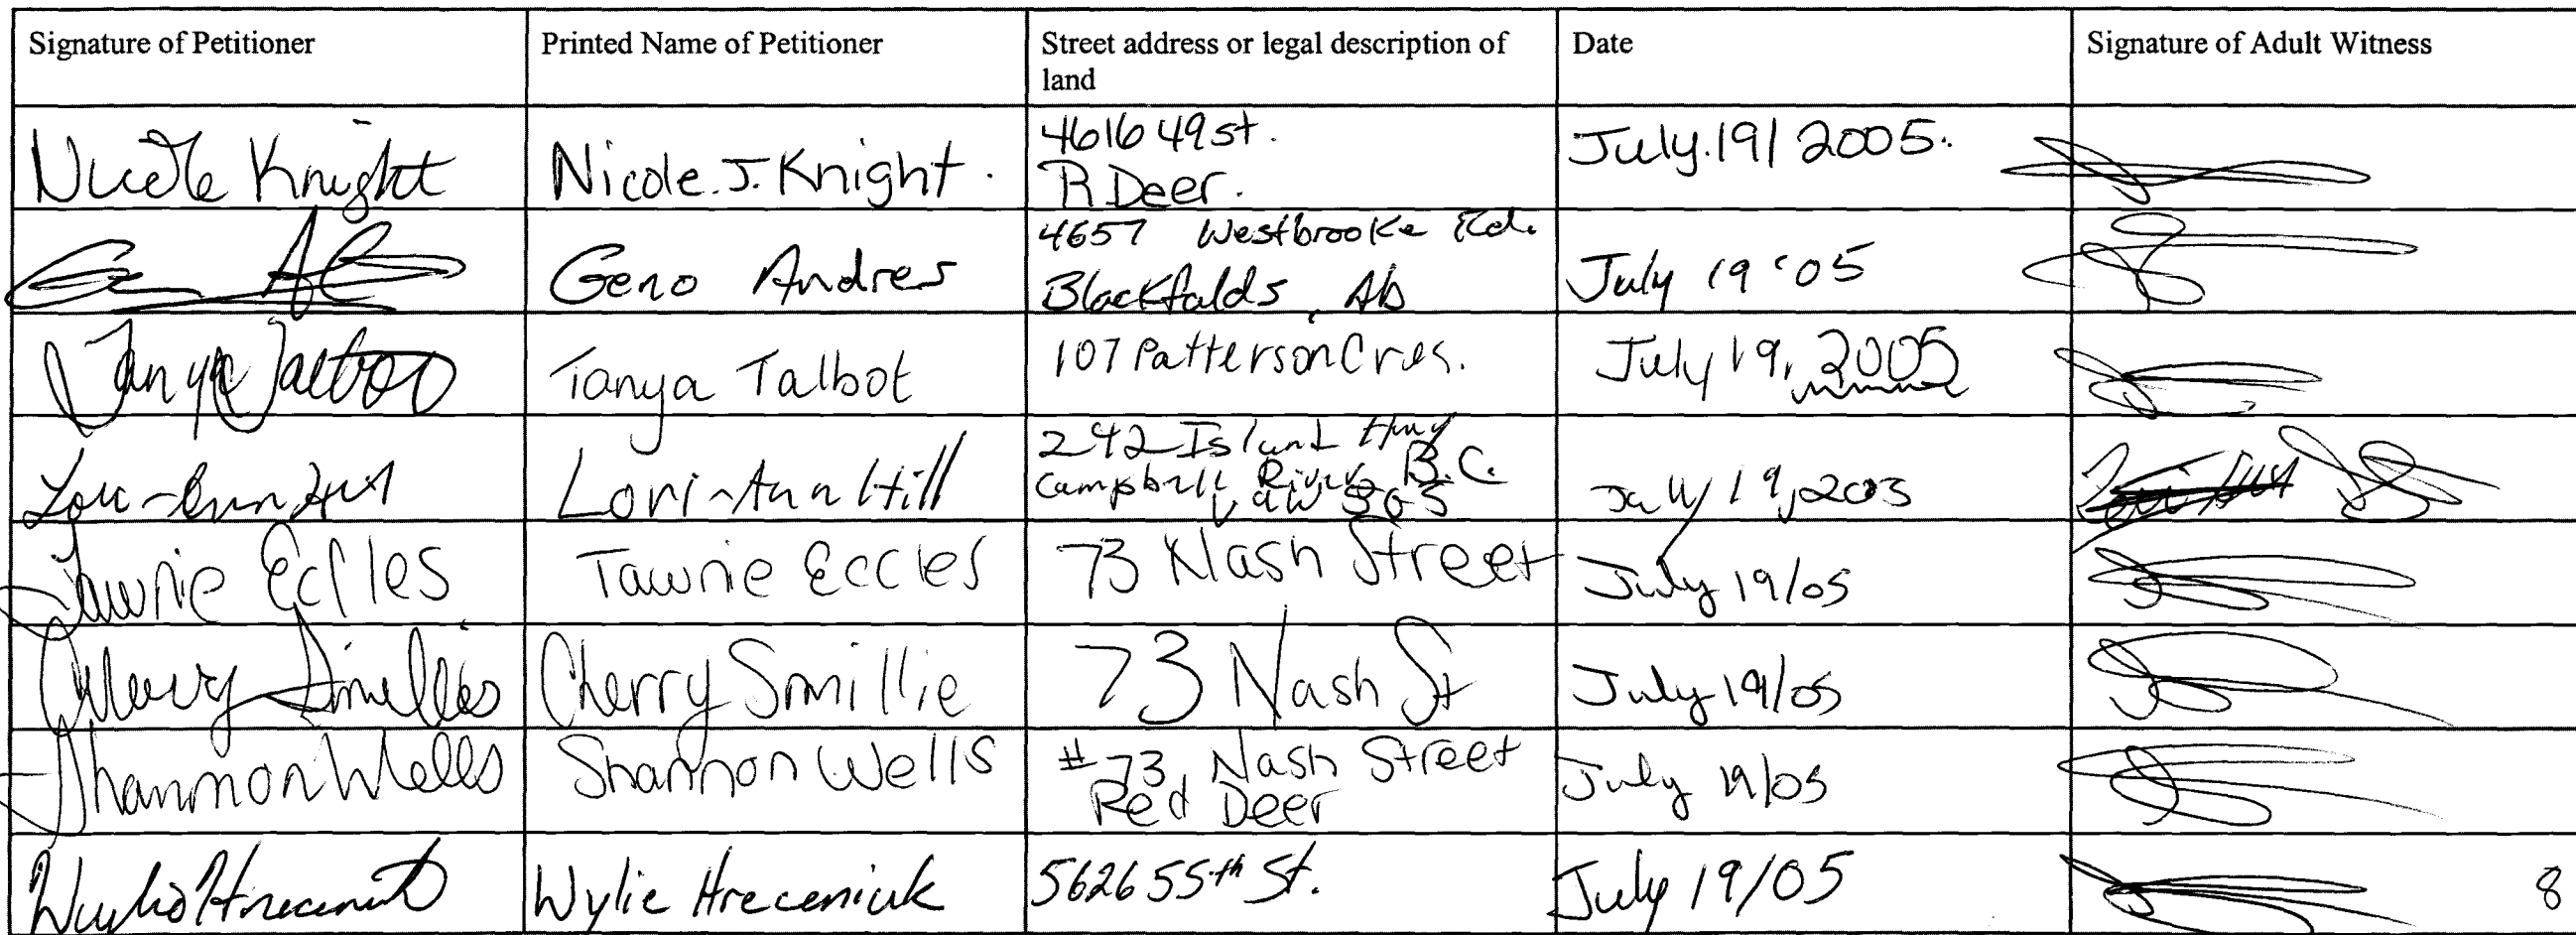 Signature of Petitioner Printed Name of Petitioner Street address or legal description of Date Signature of Adult Witness
land
Nicole Knight Nicole. J. Knight. 4616 49 st. July. 19/ 2005.
R Deer.
Geno Andres 4657 Westbrooke Rd. July 19 '05
Blackfalds, Ab
Tanya Talbot Tanya Talbot 107 Patterson Cres. July 19, 2005
Lori-Ann Hill Lori-Ann Hill 242 Island Hwy July 19, 2003
Campbell River B.C.
Tawnie Eccles Tawnie Eccles 73 Nash Street July 19/05
Cherry Smillie Cherry Smillie 73 Nash St July 19/05
Shannon Wells Shannon Wells #73, Nash Street July 19/05
Red Deer
Wylie Hreceniuk Wylie Hreceniuk 5626 55th St. July 19/05
8